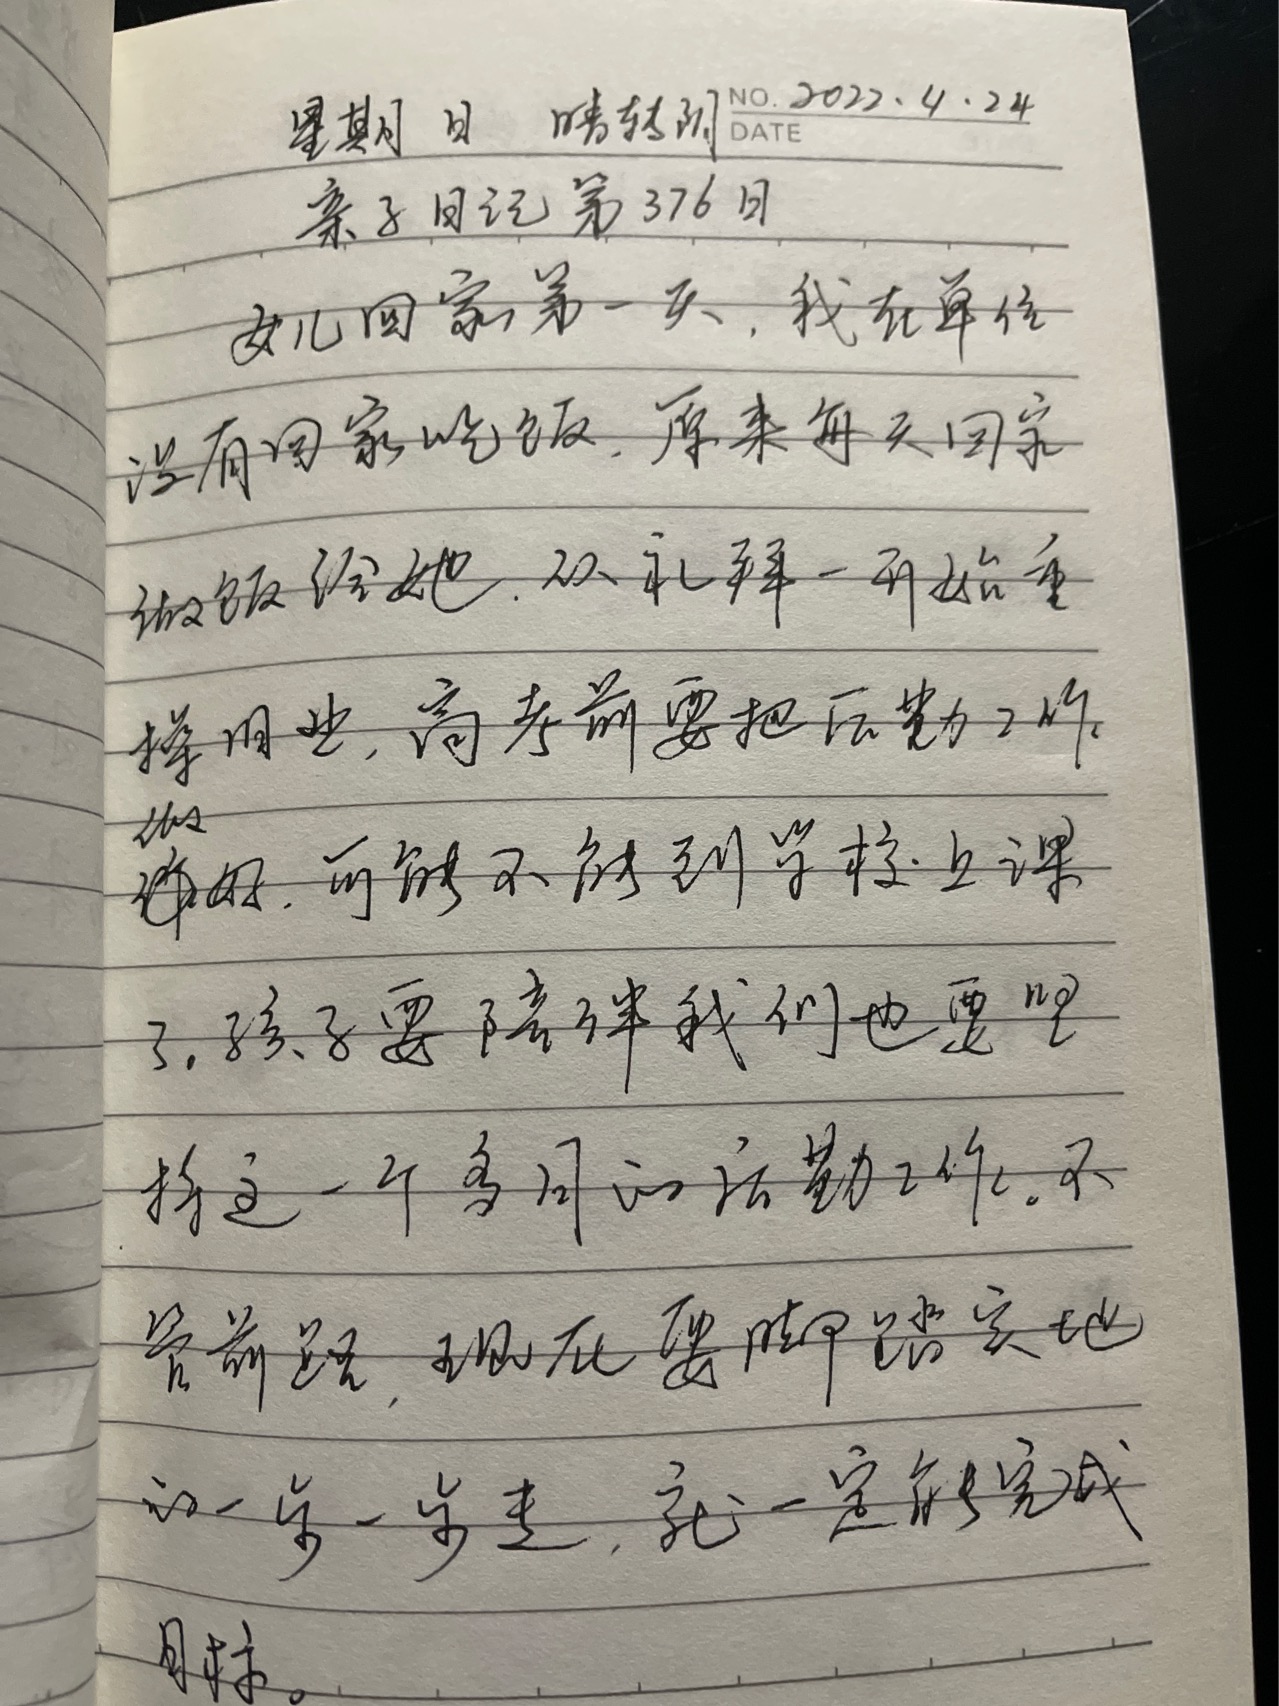 NO. 2022.4.24
星期日 晴转阴 DATE
亲子日记第376日
女儿回家第一天,我在单位
没有回家吃饭,原来每天回家
做饭给她,从礼拜一开始重
操旧业,高考前要把后勤工作
做
好,可能不能到学校上课
了。孩子要陪伴我们也要坚
持这一个多月的后勤工作。不
管前路,现在要脚踏实地
的一步一步走,就一定能完成
目标。